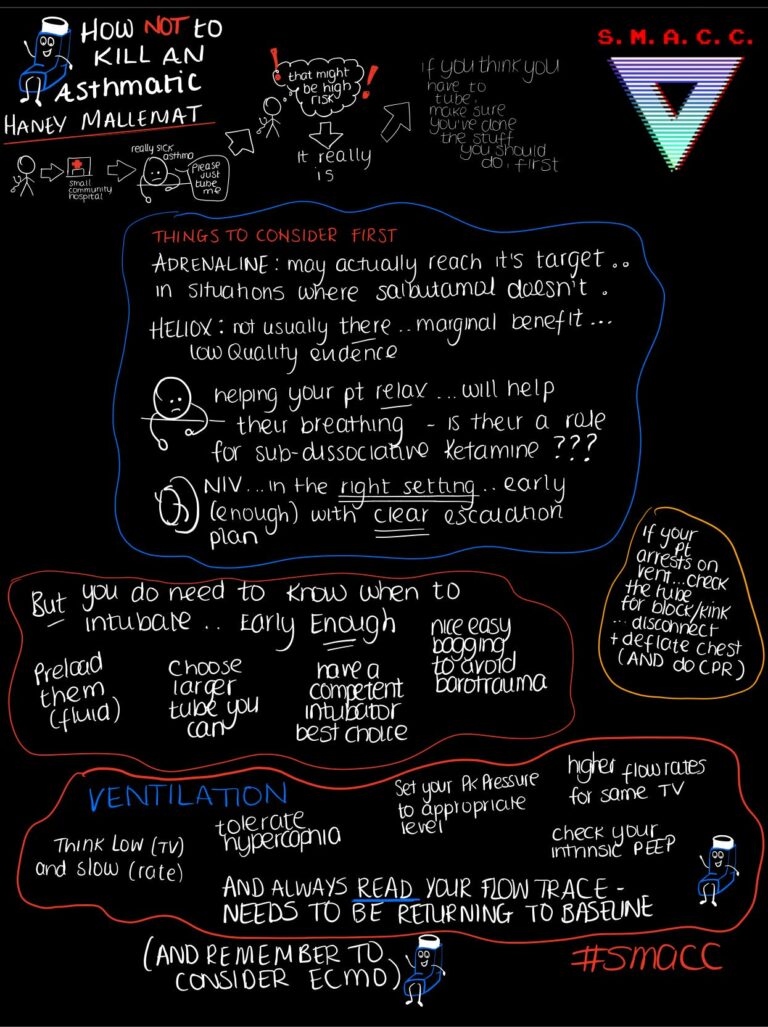 HOW NOT to
KILL AN
ASthmatic
HANEY MALLEMAT
S. M. A. C. C.
small
community
hospital
really sick
asthma
Please
just
tube
me
that might
be high
risk
!
!
it really
is
if you think you
have to
tube..
make sure
you've done
the stuff
you should
do, first
THINGS TO CONSIDER FIRST
ADRENALINE: may actually reach it's target ..
in situations where salbutamol doesn't.
HELIOX: not usually there .. marginal benefit ...
low Quality evidence
helping your pt relax ... will help
their breathing - is their a role
for sub-dissociative ketamine ???
NIV... in the right setting .. early
(enough) with clear escalation
plan
if your
pt
arrests on
vent...check
the tube
for block/kink
... disconnect
+ deflate chest
(AND do CPR)
But you do need to know when to
intubate .. Early Enough
Preload
them
(fluid)
Choose
larger
tube you
can
have a
competent
intubator
best choice
nice easy
bagging
to avoid
barotrauma
VENTILATION
Think Low (TV)
and slow (rate)
tolerate
hypercapnia
Set your Pk Pressure
to appropriate
level
higher flow rates
for same TV
check your
intrinsic PEEP
AND ALWAYS READ YOUR FLOW TRACE -
NEEDS TO BE RETURNING TO BASELINE
(AND REMEMBER TO
CONSIDER ECMO)
#smacc